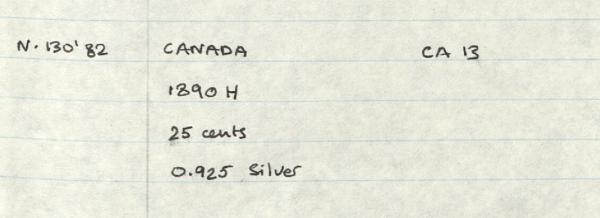 N. 130'82 CANADA CA 13
1890 H
25 cents
0.925 Silver